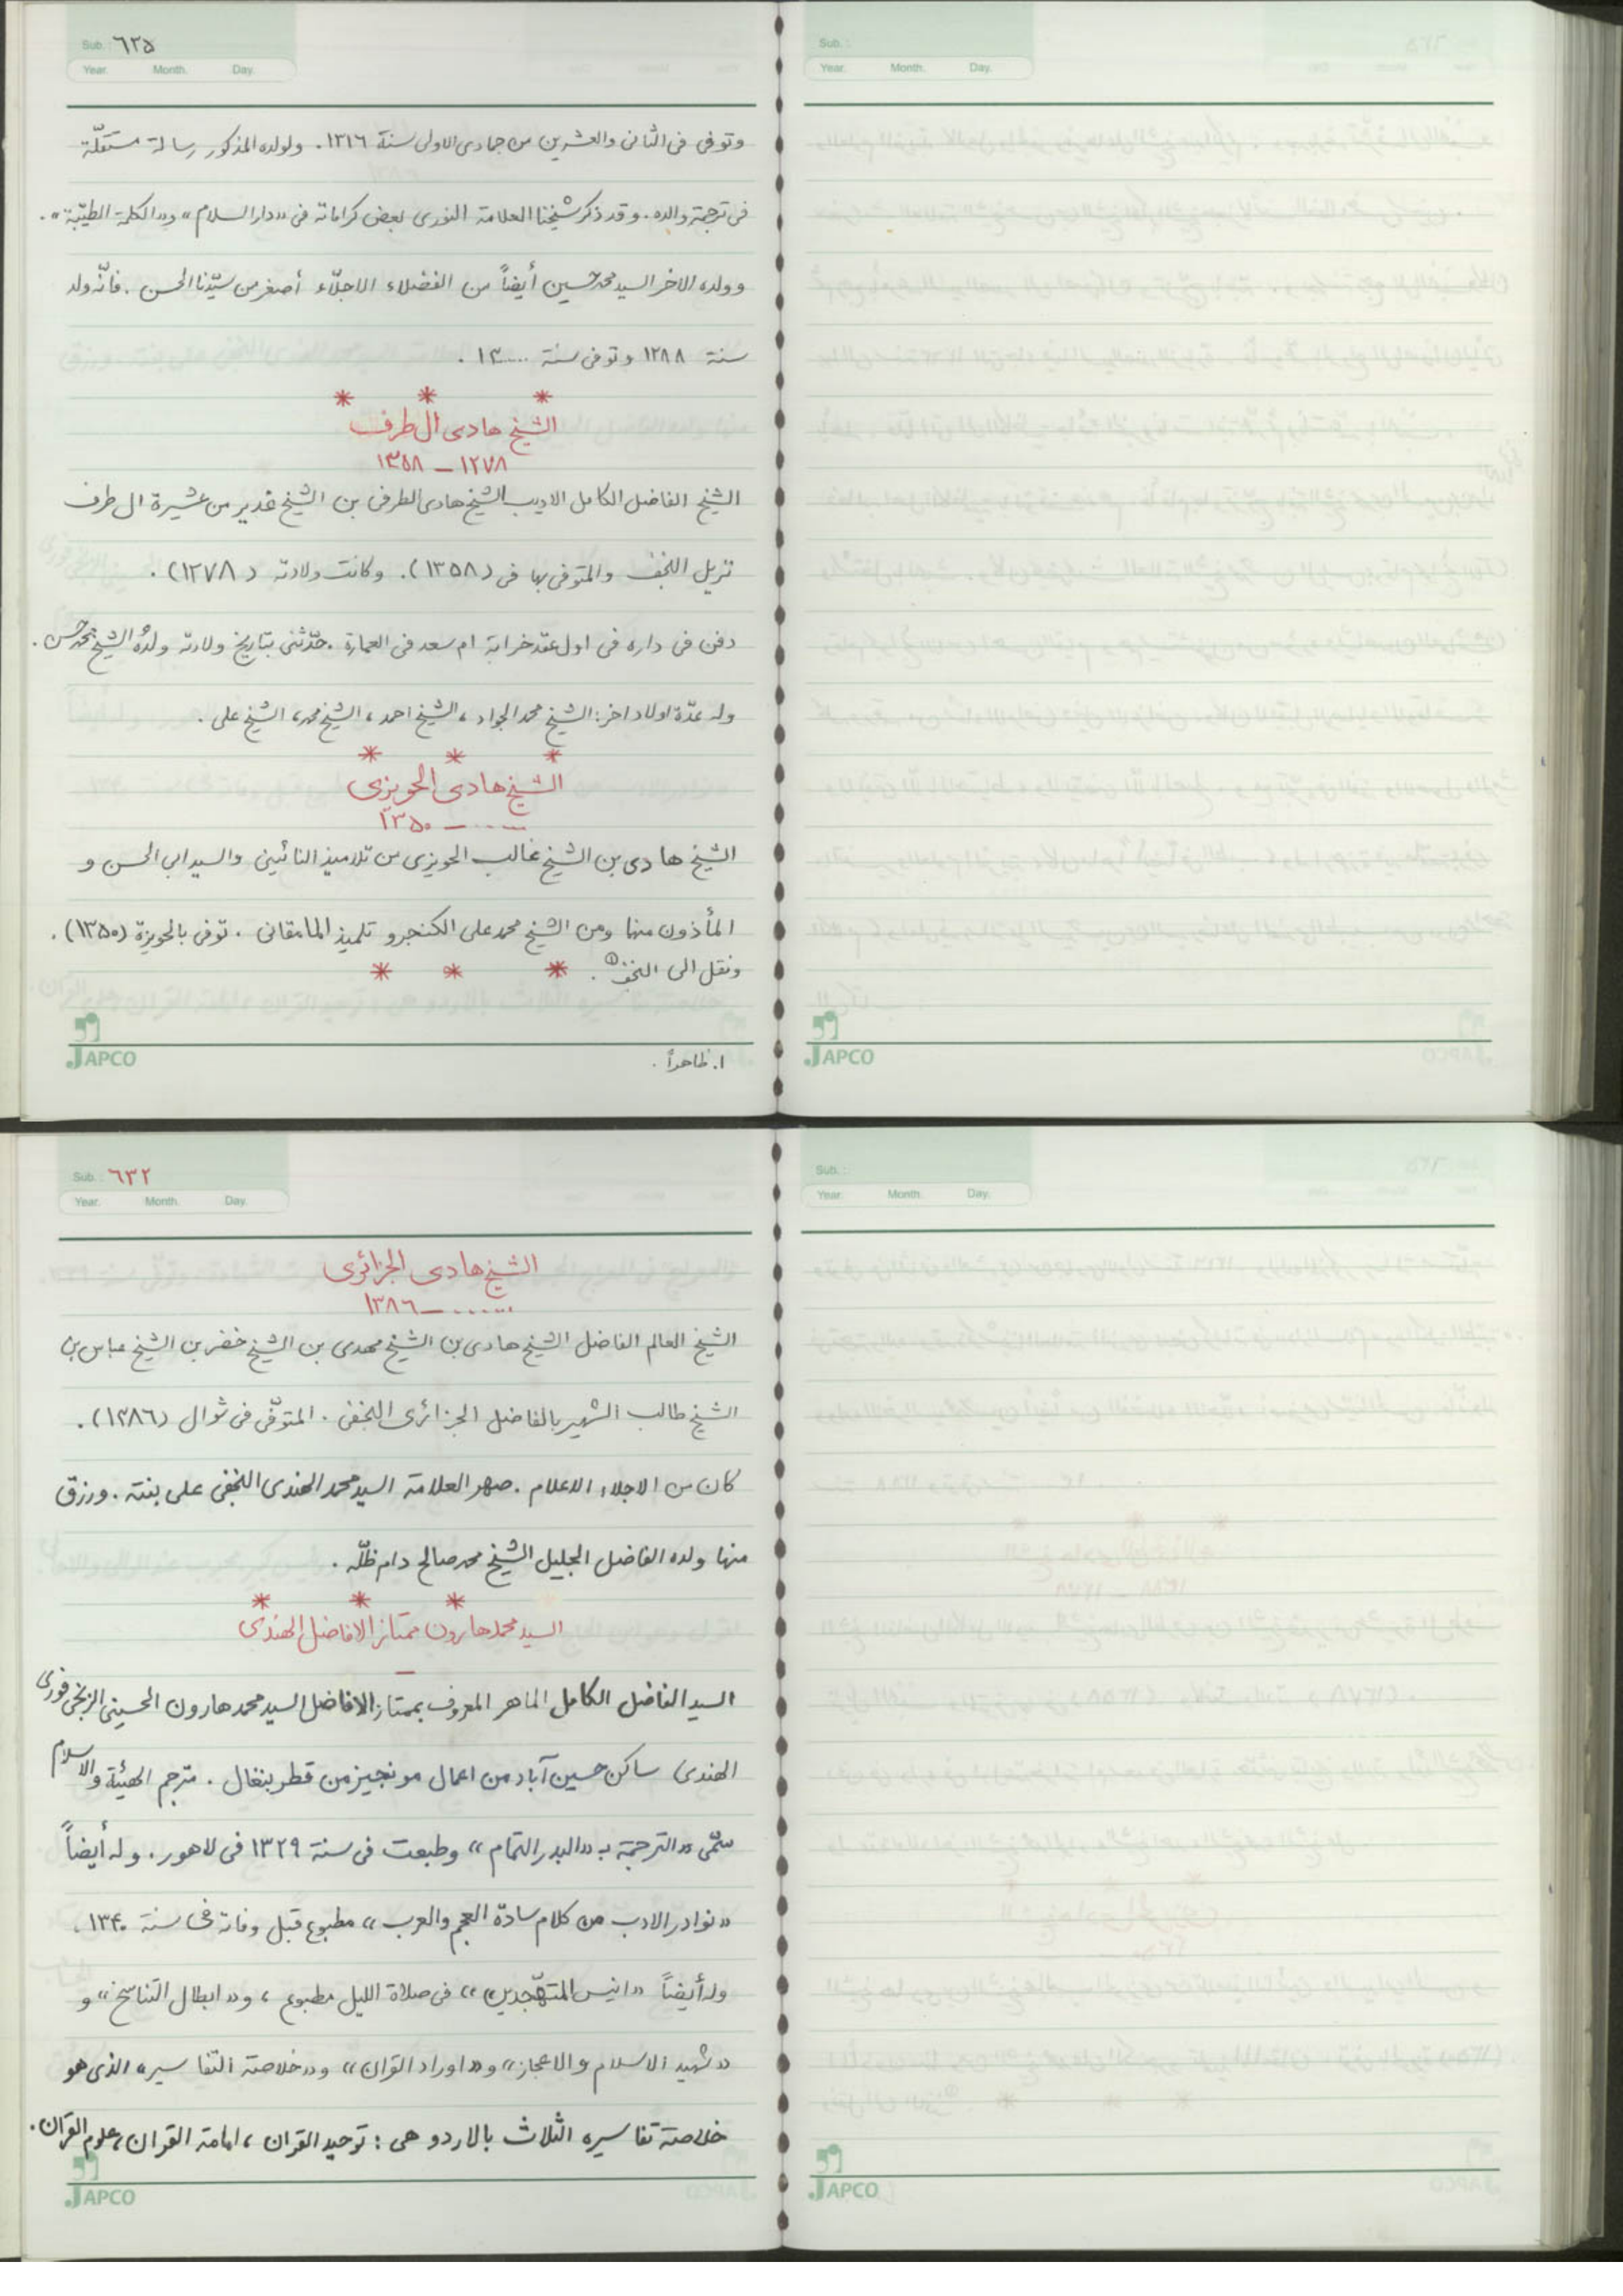 Sub. ٦٢٥
Year. Month. Day.
وتوفى فى الثانى والعشرين من جمادى الاولى سنة ١٣١٦. ولولده المذكور رسالة مستقلّة
فى ترجمة والده. وقد ذكر شيخنا العلامة النورى بعض كراماته فى «دار السلام» و«الكلمة الطيّبة».
وولده الاخر السيد محمد حسين أيضاً من الفضلاء الاجلّاء أصغر من سيّدنا الحسن. فانّه ولد
سنة ١٢٨٨ وتوفى سنة .....١٣ .
* * *
الشيخ هادى ال طرف
١٢٧٨ – ١٣٥٨
الشيخ الفاضل الكامل الاديب الشيخ هادى الطرفى بن الشيخ غدير من عشيرة ال طرف
نزيل النجف والمتوفى بها فى (١٣٥٨). وكانت ولادته (١٢٧٨).
دفن فى داره فى اول عقد خرابة ام سعد فى العمارة. حدّثنى بتاريخ ولادته ولده الشيخ محمد حسن.
وله عدّة اولاد اخر: الشيخ محمد الجواد، الشيخ احمد، الشيخ محمد، الشيخ على.
* * *
الشيخ هادى الحويزى
...... – ١٣٥٠
الشيخ هادى بن الشيخ غالب الحويزى من تلاميذ النائينى والسيد ابى الحسن و
المأذون منهما ومن الشيخ محمد على الكنجرو تلميذ المامقانى. توفى بالحويزة (١٣٥٠).
ونقل الى النجف①. * * *
JAPCO
١. ظاهراً.
Sub. :
Year. Month. Day.
JAPCO
Sub. : ٦٣٢
Year. Month. Day.
الشيخ هادى الجزائرى
...... – ١٣٨٦
الشيخ العالم الفاضل الشيخ هادى بن الشيخ مهدى بن الشيخ خضر بن الشيخ عباس بن
الشيخ طالب الشهير بالفاضل الجزائرى النجفى. المتوفّى فى شوال (١٣٨٦).
كان من الاجلاء الاعلام. صهر العلامة السيد محمد الهندى النجفى على بنته. ورزق
منها ولده الفاضل الجليل الشيخ محمد صالح دام ظلّه.
* * *
السيد محمد هارون ممتاز الافاضل الهندى
–
السيد الفاضل الكامل الماهر المعروف بممتاز الافاضل السيد محمد هارون الحسينى الزنجى فورى
الهندى ساكن حسين آباد من اعمال مونجيز من قطر بنغال. مترجم الهيئة والاسلام
سمّى «الترجمة بـ «البدر التمام» وطبعت فى سنة ١٣٢٩ فى لاهور. وله أيضاً
«نوادر الادب من كلام سادة العجم والعرب» مطبوع قبل وفاته فى سنة ١٣٤٠.
وله أيضاً «انيس المتهجّدين» فى صلاة الليل مطبوع، و«ابطال التناسخ» و
«شهيد الاسلام والاعجاز» و«اوراد القران» و«خلاصة التفاسير» الذى هو
خلاصة تفاسيره الثلاث بالاردو هى: توحيد القران، امامة القران، علوم القران.
JAPCO
Sub. :
Year. Month. Day.
JAPCO